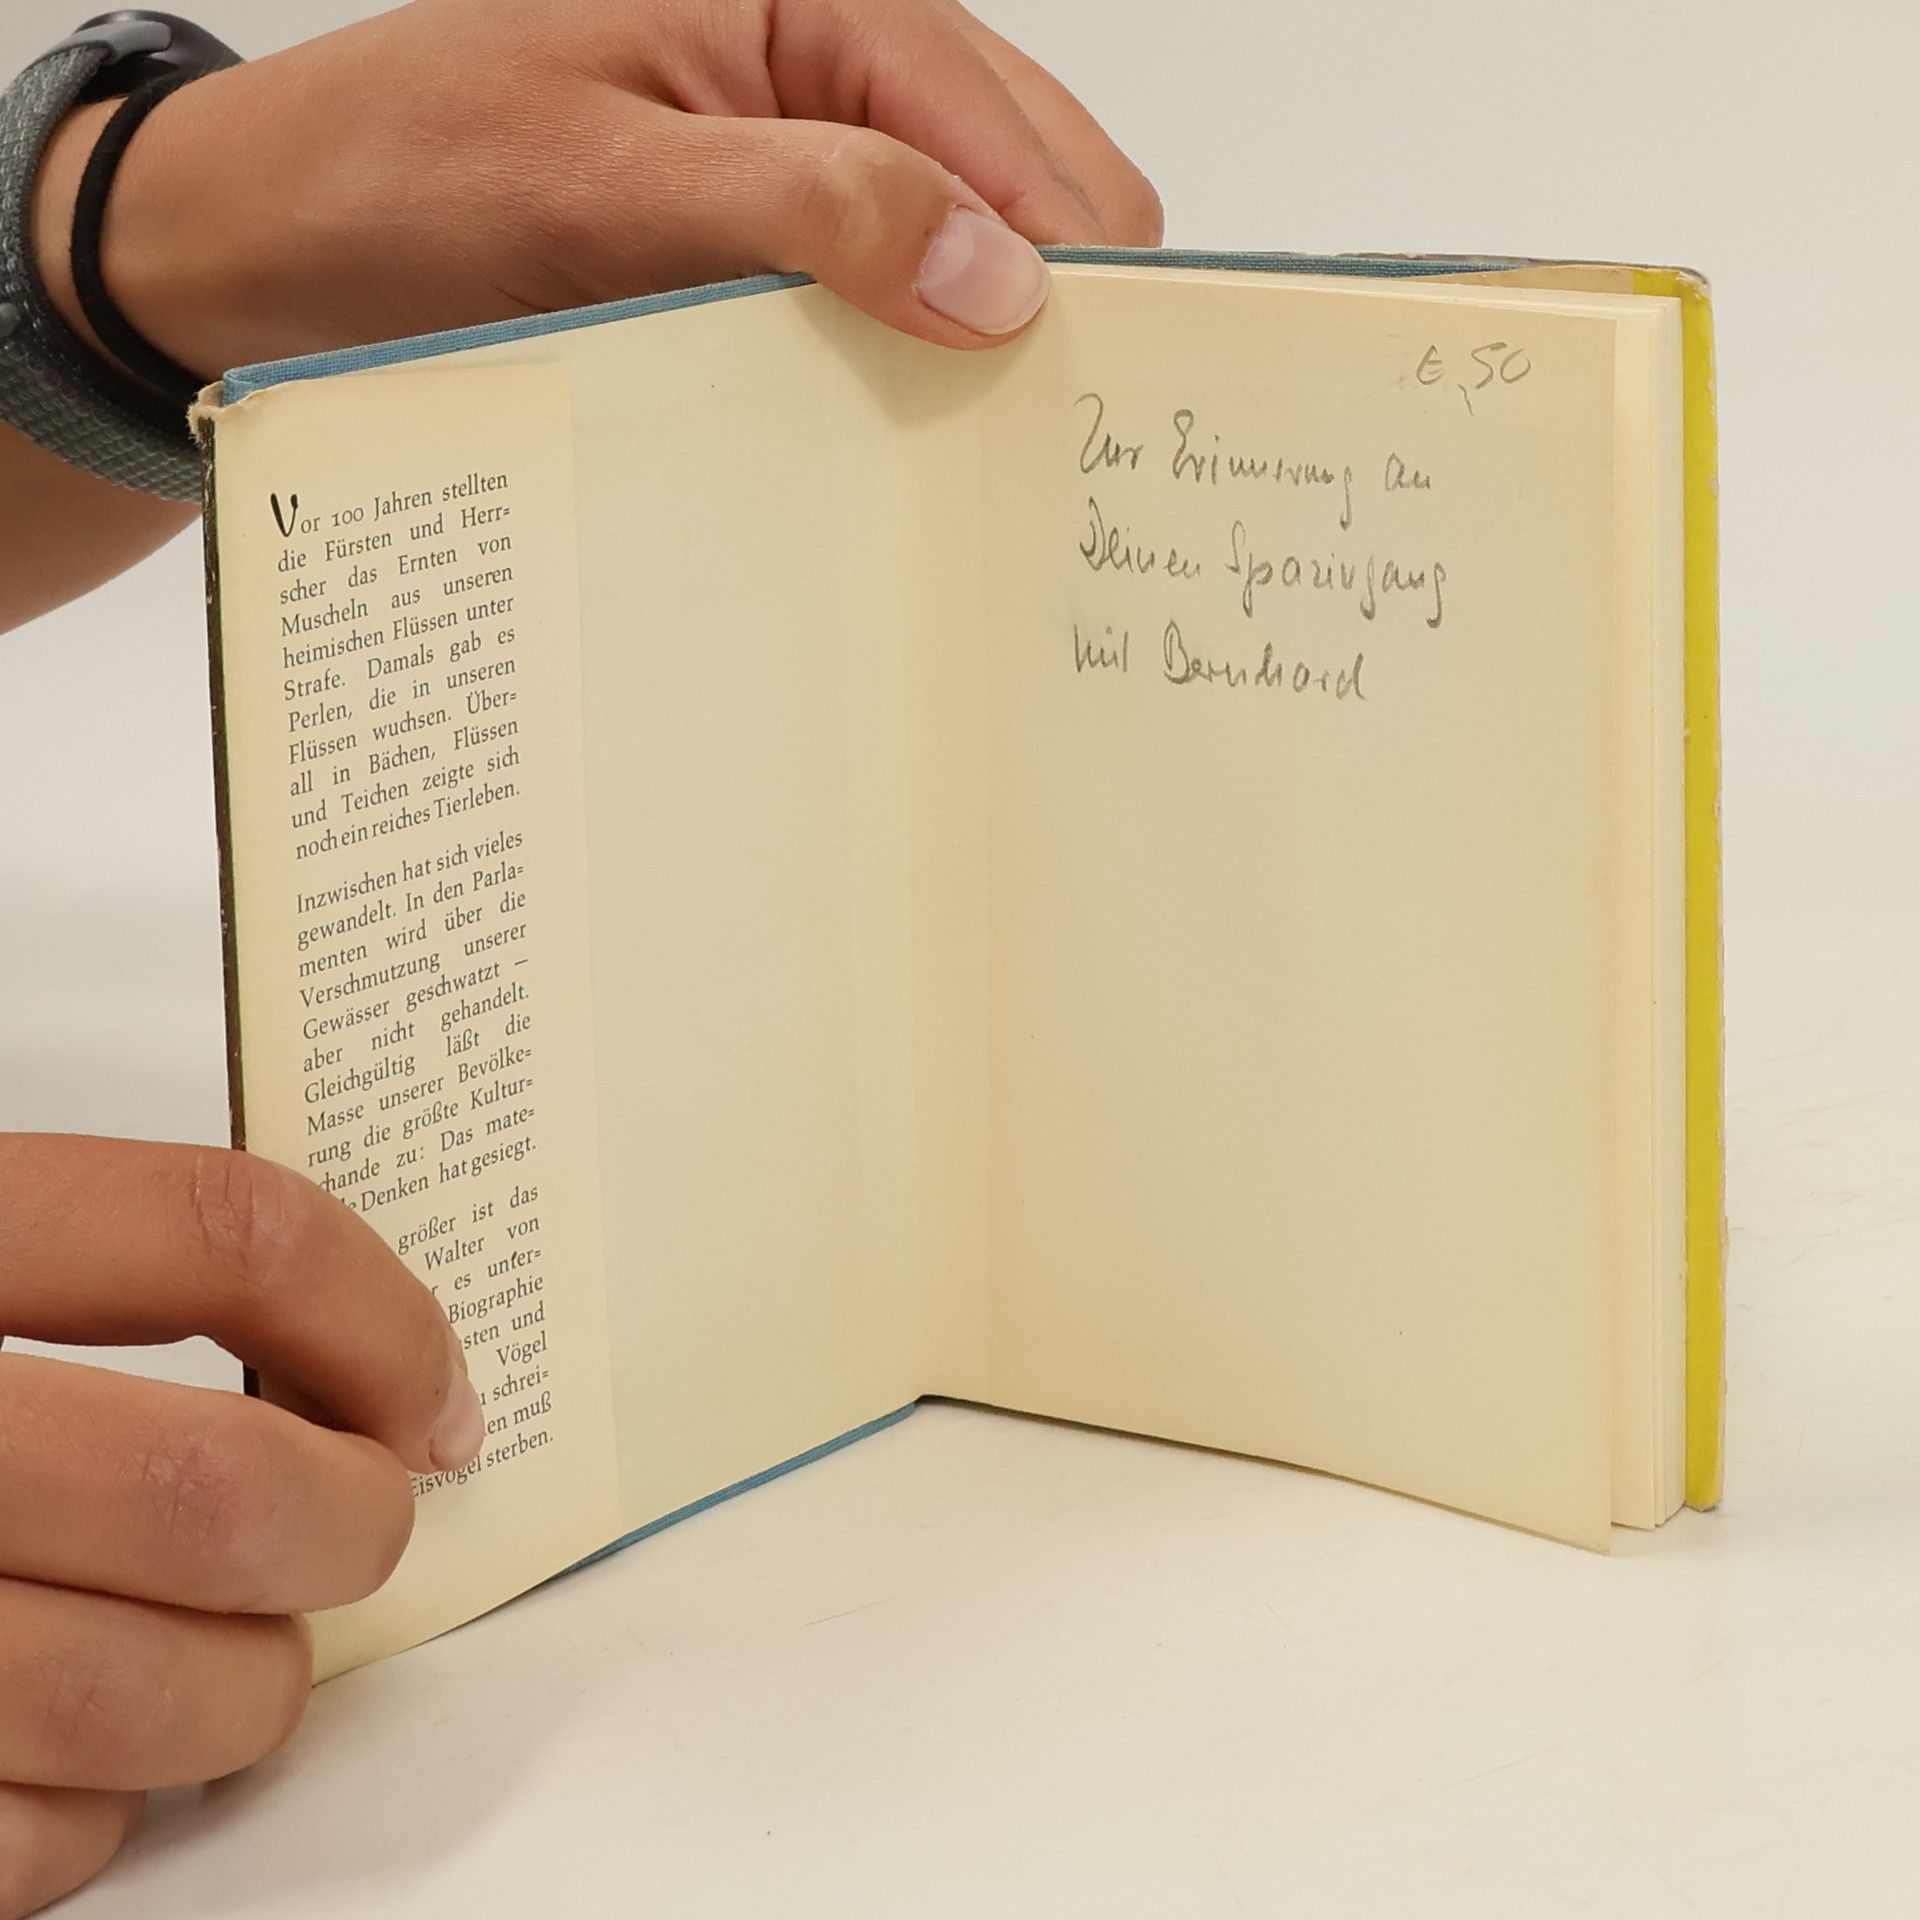 Vor 100 Jahren stellten
die Fürsten und Herr=
scher das Ernten von
Muscheln aus unseren
heimischen Flüssen unter
Strafe. Damals gab es
Perlen, die in unseren
Flüssen wuchsen. Über=
all in Bächen, Flüssen
und Teichen zeigte sich
noch ein reiches Tierleben.
Inzwischen hat sich vieles
gewandelt. In den Parla=
menten wird über die
Verschmutzung unserer
Gewässer geschwatzt –
aber nicht gehandelt.
Gleichgültig läßt die
Masse unserer Bevölke=
rung die größte Kultur=
chande zu: Das mate=
le Denken hat gesiegt.
größer ist das
Walter von
r es unter=
Biographie
sten und
Vögel
u schrei=
en muß
Eisvogel sterben.
€,50
Zur Erinnerung an
Deinen Spaziergang
mit Bernhard